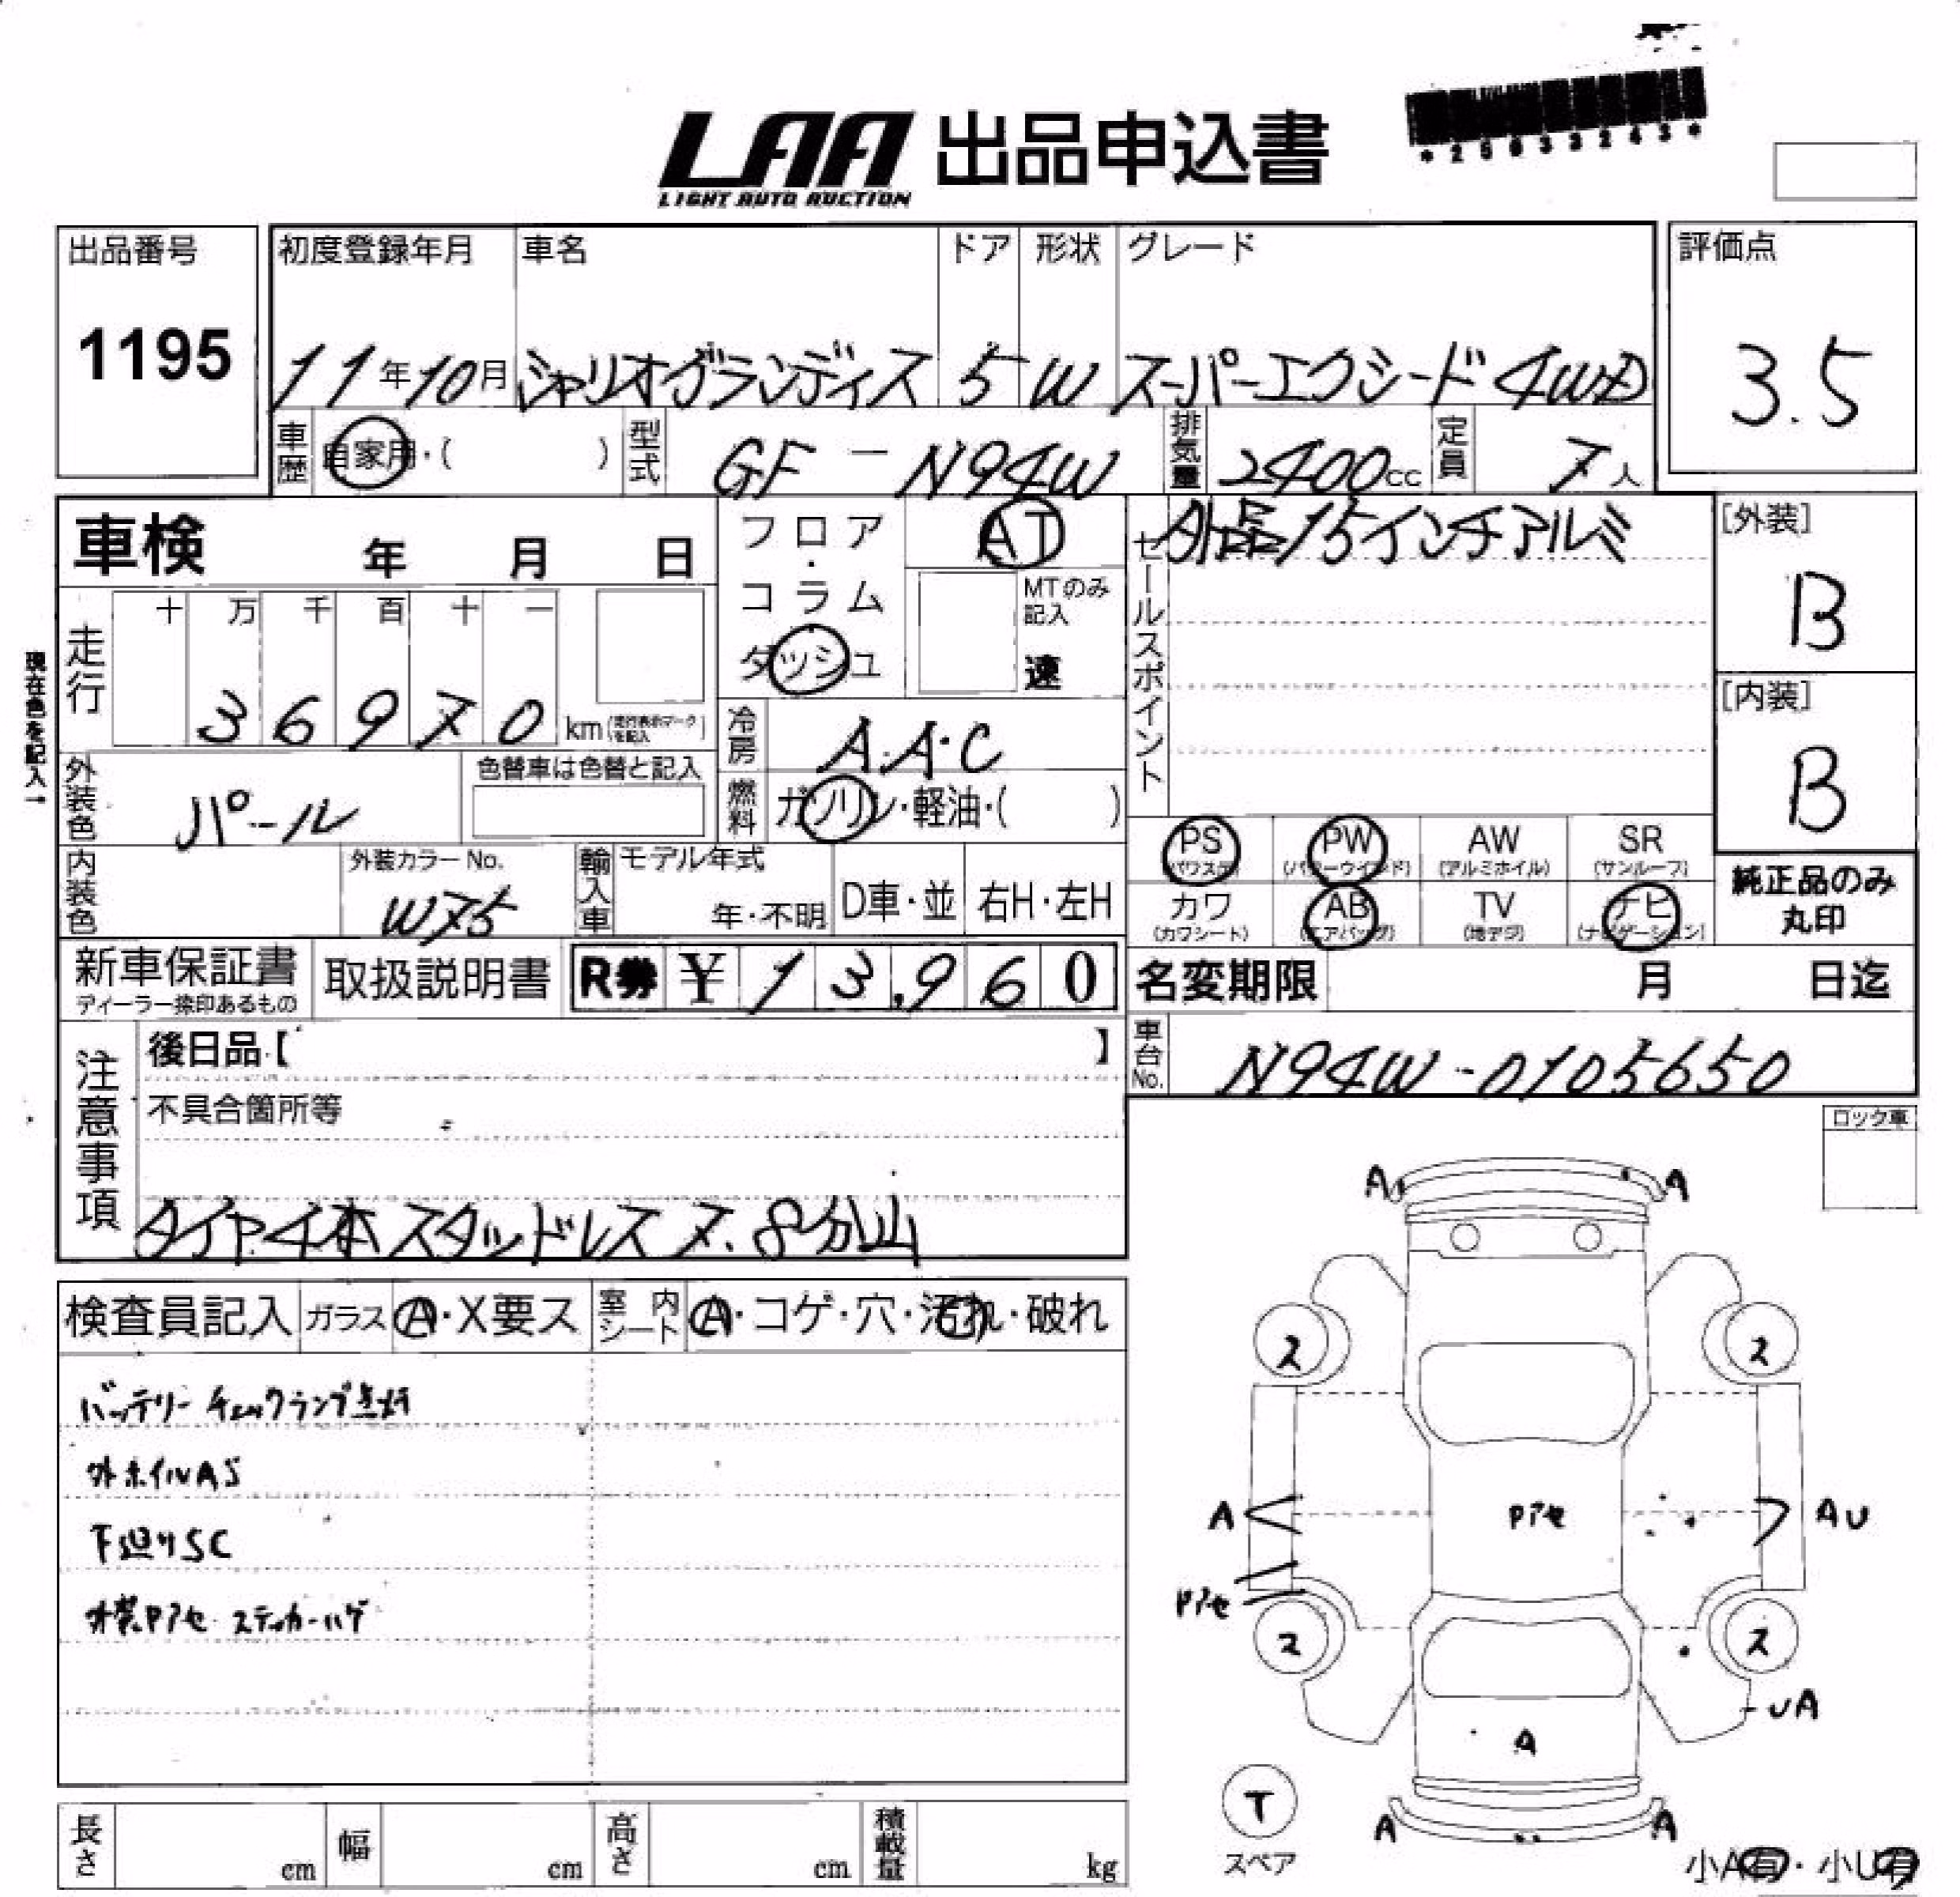 LAA 出品申込書
LIGHT AUTO AUCTION
出品番号
1195
初度登録年月
11年10月
車名
シャリオグランディス
ドア
5
形状
W
グレード
スーパーエクシード4WD
評価点
3.5
車歴
自家用・( )
型式
GF-N94W
排気量
2400cc
定員
7人
車検 年 月 日
フロア・コラム
ダッシュ
AT
MTのみ記入
速
セールスポイント
外品15インチアルミ
[外装]
B
[内装]
B
現在色を記入→
走行
十 万 千 百 十 一
3 6 9 7 0 km
(走行表示マークを記入)
冷房
A.A.C
外装色
パール
色替車は色替と記入
燃料
ガソリン・軽油・( )
PS
(パワステ)
PW
(パワーウインド)
AW
(アルミホイル)
SR
(サンルーフ)
カワ
(カワシート)
AB
(エアバッグ)
TV
(地デジ)
ナビ
(ナビゲーション)
純正品のみ
丸印
内装色
外装カラーNo.
W75
輸入車
モデル年式
年・不明
D車・並
右H・左H
新車保証書
ディーラー捺印あるもの
取扱説明書
R券 ¥ 1 3,9 6 0
名変期限 月 日迄
車台No.
N94W-0105650
注意事項
後日品【 】
不具合箇所等
タイヤ4本スタッドレス 7.8分山
ロック車
検査員記入
ガラス
A・X要ス
室内シート
A・コゲ・穴・汚れ・破れ
バッテリーチェックランプ点灯
外ホイルAS
下廻りSC
外装Pアセ ステッカーハゲ
A A
ス ス
A Pアセ AU
Pアセ
ス ス
UA
A
T
スペア
A A
小A有・小U有
長さ cm
幅 cm
高さ cm
積載量 kg